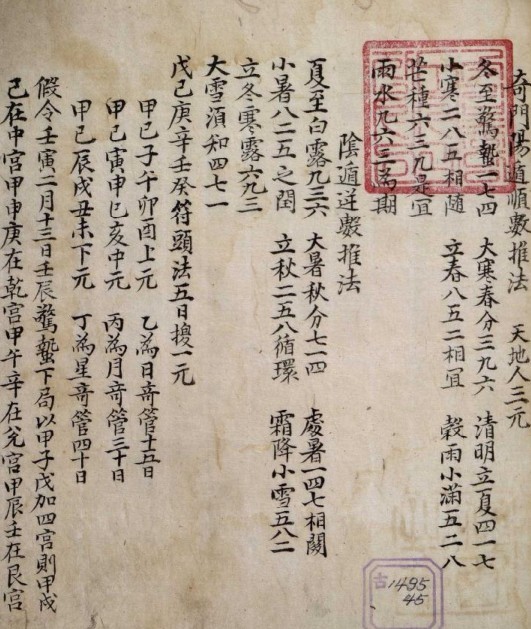 奇門陽遁順數推法 天地人三元
冬至驚蟄一七四 大寒春分三九六 清明立夏四一七
小寒二八五相随 立春八五二相冝 穀雨小滿五二八
芒種六三九是冝
雨水九六三為期
陰遁逆數推法
夏至白露九三六 大暑秋分七一四 處暑一四七相關
小暑八二五之間 立秋二五八循環 霜降小雪五八二
立冬寒露六九三
大雪須知四七一
戊己庚辛壬癸符頭法五日換一元
甲己子午卯酉上元 乙為日奇管十五日
甲己寅申巳亥中元 丙為月奇管三十日
甲己辰戌丑未下元 丁為星奇管四十日
假令壬寅二月十三日壬辰驚蟄下局以甲子戊加四宮則甲戌
己在中宮甲申庚在乾宮甲午辛在兌宮甲辰壬在艮宮
古1495
45